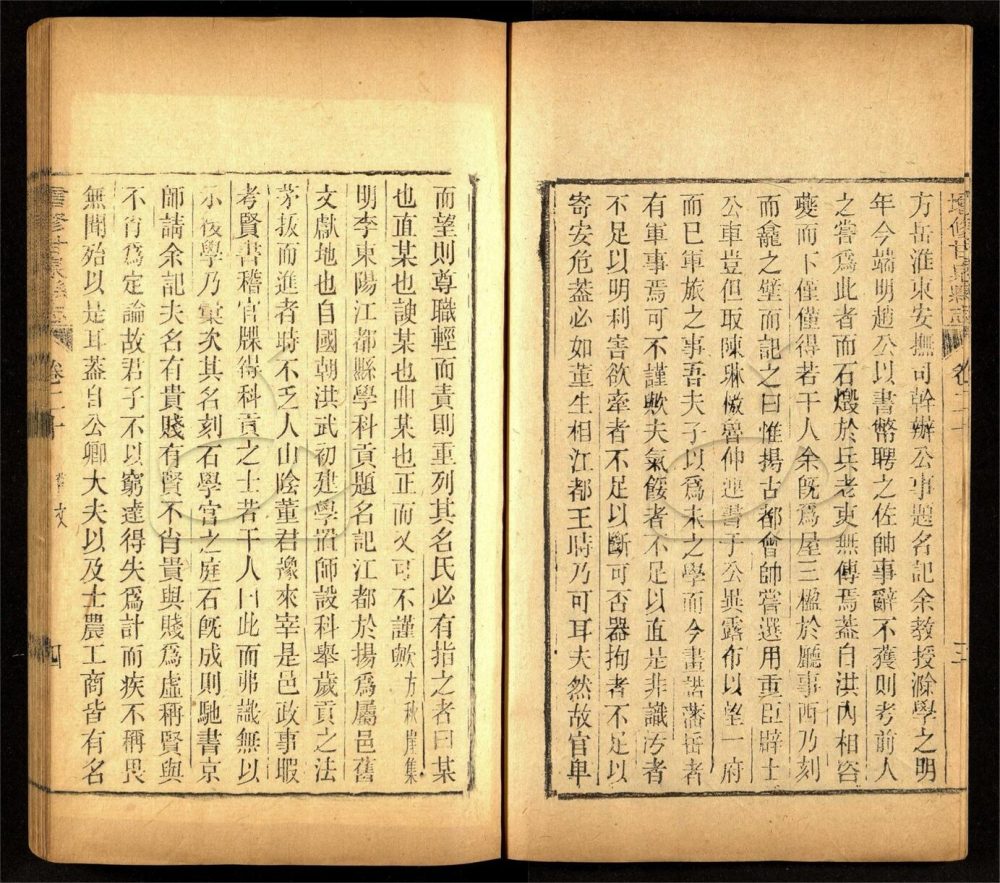 增修甘泉縣志 卷二十 三
方岳淮東安撫司幹辦公事題名記余教授滁學之明
年今端明趙公以書幣聘之佐帥事辭不獲則考前人
之嘗爲此者而石燬於兵老吏無傳焉蓋自洪內相咨
夔而下僅僅得若干人余旣爲屋三楹於廳事西乃刻
而龕之壁而記之曰惟揚古都會帥嘗選用重臣辟士
公車豈但取陳琳檄魯仲連書于公異露布以望一府
而已軍旅之事吾夫子以爲未之學而今畫諾藩岳者
有軍事焉可不謹歟夫氣餒者不足以直是非識汚者
不足以明利害欲牽者不足以斷可否器拘者不足以
寄安危蓋必如董生相江都王時乃可耳夫然故官卑
而望則尊職輕而責則重列其名氏必有指之者曰某
也直某也諛某也曲某也正而又可不謹歟方秋崖集
明李東陽江都縣學科貢題名記江都於揚爲屬邑舊
文獻地也自國朝洪武初建學置師設科舉歲貢之法
茅拔而進者時不乏人山陰董君豫來宰是邑政事暇
考賢書稽官牒得科貢之士若干人曰此而弗識無以
示後學乃彙次其名刻石學官之庭石旣成則馳書京
師請余記夫名有貴賤有賢不肖貴與賤爲虛稱賢與
不肖爲定論故君子不以窮達得失爲計而疾不稱畏
無聞殆以是耳蓋自公卿大夫以及士農工商皆有名
增修甘泉縣志 卷二十 四